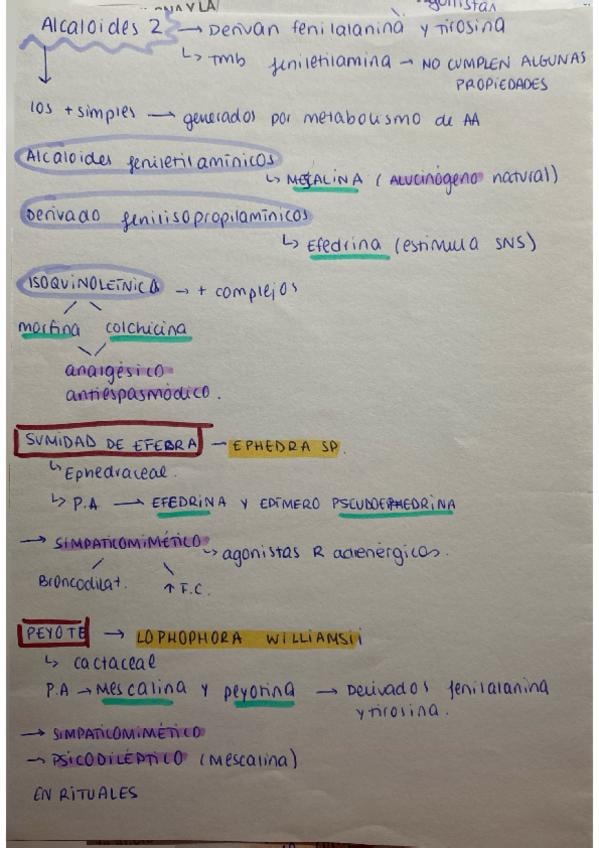 Alcaloides 2 → Derivan fenilalanina y tirosina
↳ Tmb feniletilamina → NO CUMPLEN ALGUNAS
PROPIEDADES
los + simples → generados por metabolismo de AA
Alcaloides feniletilamínicos
↳ MESCALINA (ALUCINÓGENO natural)
Derivado fenilisopropilamínicos
↳ Efedrina (estimula SNS)
ISOQUINOLEÍNICA → + complejos
morfina colchicina
analgésico
antiespasmódico.
SUMIDAD DE EFEBRA — EPHEDRA SP.
↳ Ephedraceae.
↳ P.A → EFEDRINA Y EPÍMERO PSEUDOEPHEDRINA
→ SIMPATICOMIMÉTICO ↳ agonistas R adrenérgicos.
Broncodilat. ↑ F.C.
PEYOTE → LOPHOPHORA WILLIAMSII
↳ cactaceae
P.A → Mescalina y peyotina → Derivados fenilalanina
y tirosina.
→ SIMPATICOMIMÉTICO
→ PSICODILÉPTICO (Mescalina)
EN RITUALES